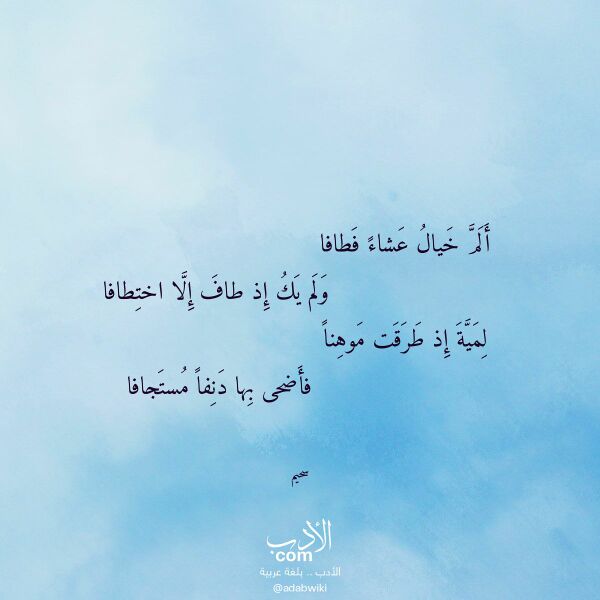 أَلَمَّ خَيالُ عَشاءً فَطافا
وَلَم يَكُ إِذ طافَ إِلَّا اختِطافا
لِمَيَّةَ إِذ طَرَقَت مَوهِناً
فَأَضحى بِها دَنِفاً مُستَجافا
سحيم
الأدب
com
الأدب .. بلغة عربية
@adabwiki